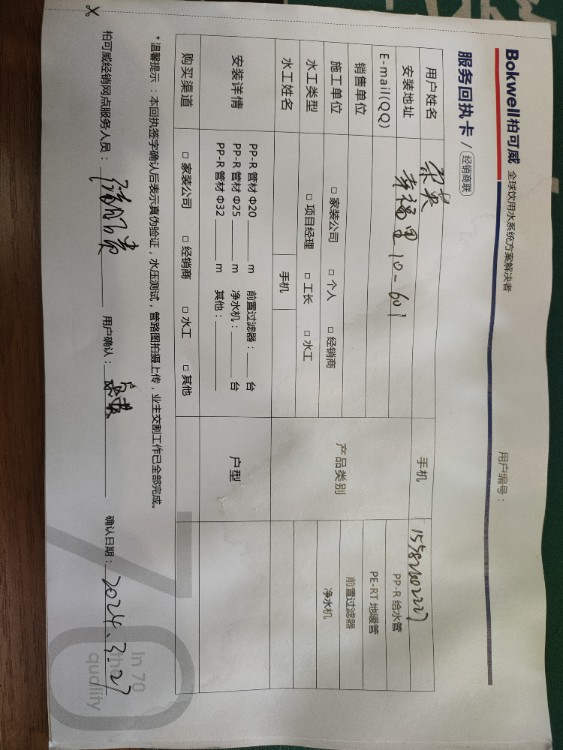 Bokwell柏可威 全球饮用水系统方案解决者
服务回执卡 / 经销商联
用户编号：
用户姓名 手机 15582602227
安装地址 幸福里10-601 PP-R 给水管
E-mail(QQ) PE-RT 地暖管
销售单位 产品类别 前置过滤器
施工单位 □ 家装公司 □ 个人 □ 经销商 净水机
水工类型 □ 项目经理 □ 工长 □ 水工
水工姓名 手机
安装详情 户型
PP-R 管材 Φ20 m 前置过滤器： 台
PP-R 管材 Φ25 m 净水机： 台
PP-R 管材 Φ32 m 其他：
购买渠道 □ 家装公司 □ 经销商 □ 水工 □ 其他
* 温馨提示：本回执签字确认后表示真伪验证，水压测试，管路图拍摄上传，业主交割工作已全部完成。
柏可威经销网点服务人员： 用户确认： 确认日期：2024.3.27
70
In 70
the
quality